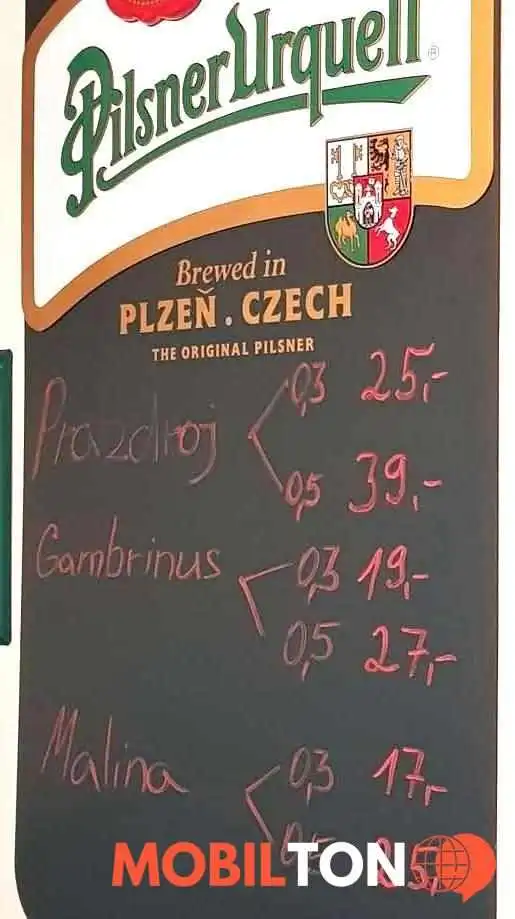 Pilsner Urquell ®
Brewed in
PLZEŇ . CZECH
THE ORIGINAL PILSNER
Prazdroj 0,3 25,-
0,5 39,-
Gambrinus 0,3 19,-
0,5 27,-
Malina 0,3 17,-
0,5
MOBILTON